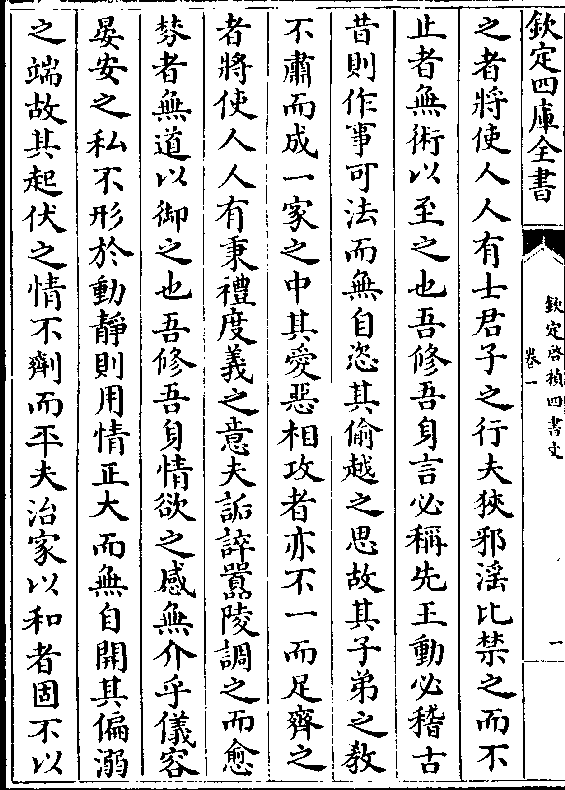 欽定四庫全書
欽定啓禎四書文
卷一
一
之者將使人人有士君子之行夫狹邪滛比禁之而不
止者無術以至之也吾修吾身言必稱先王動必稽古
昔則作事可法而無自恣其偷越之思故其子弟之教
不肅而成一家之中其愛惡相攻者亦不一而足齊之
者將使人人有秉禮度義之意夫詬誶嚚陵調之而愈
棼者無道以御之也吾修吾身情欲之感無介乎儀容
晏安之私不形於動靜則用情正大而無自開其偏溺
之端故其起伏之情不劑而平夫治家以和者固不以